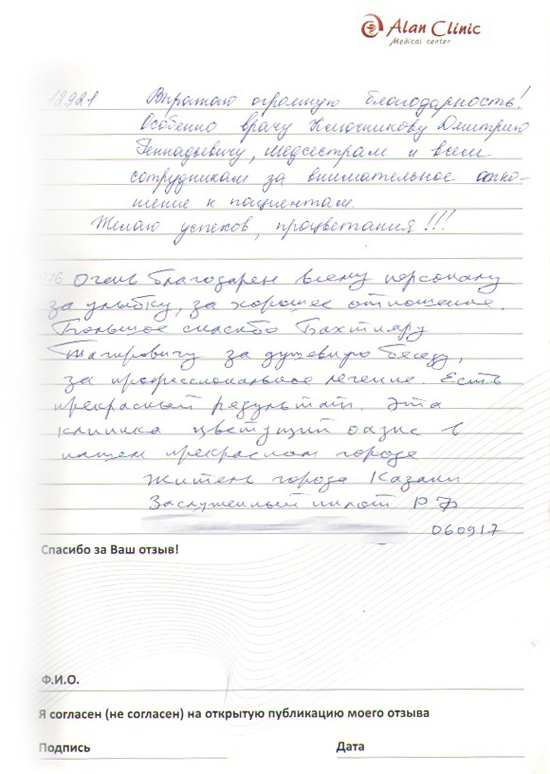 Alan Clinic
Medical center
12921 Выражаю огромную благодарность!
Особенно врачу Ключникову Дмитрию
Геннадьевичу, медсестрам и всем
сотрудникам за внимательное отно-
шение к пациентам.
Желаю успехов, процветания!!!
Очень благодарен всему персоналу
за улыбку, за хорошее отношение.
Большое спасибо Бахтияру
Тагировичу за душевную беседу,
за профессиональное лечение. Есть
прекрасный результат. Эта
клиника цветущий оазис в
нашем прекрасном городе
Житель города Казани
Заслуженный пилот РФ
060917
Спасибо за Ваш отзыв!
Ф.И.О.
Я согласен (не согласен) на открытую публикацию моего отзыва
Подпись Дата